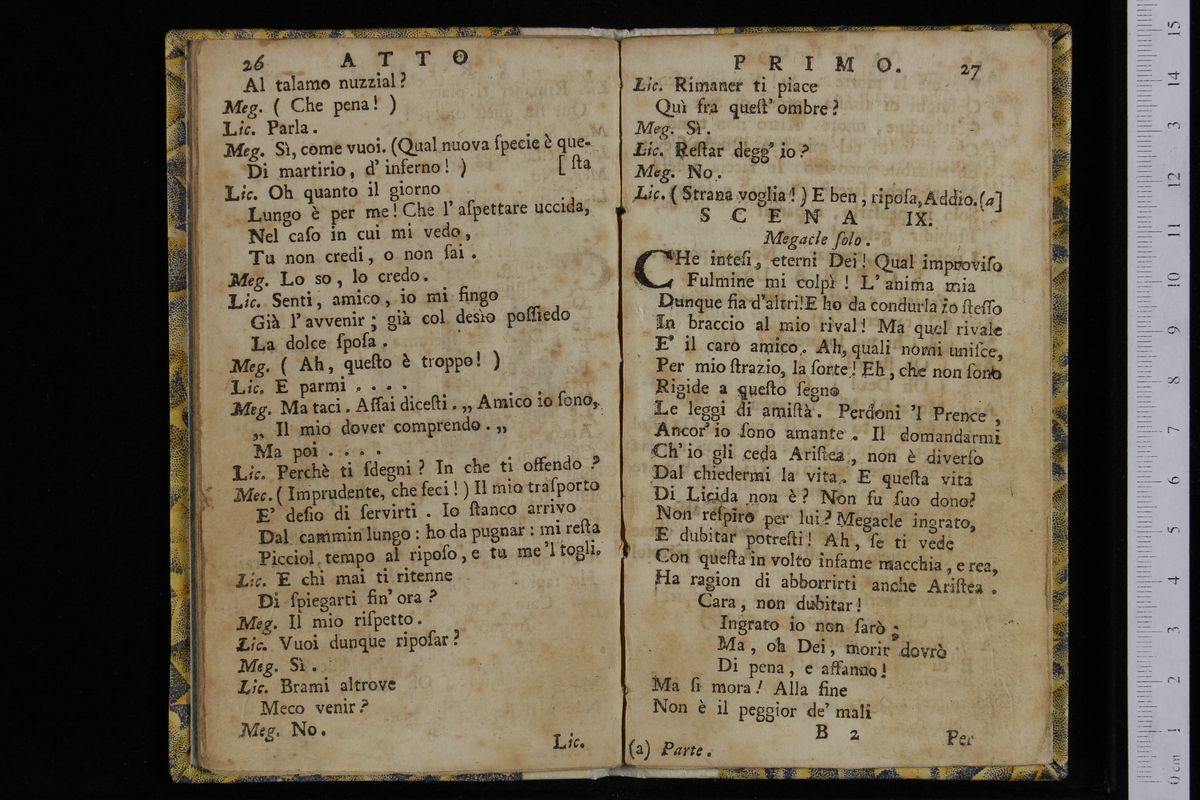 26 ATTO
Al talamo nuzzial?
Meg. ( Che pena! )
Lic. Parla.
Meg. Sì, come vuoi. (Qual nuova ſpecie è que-
Di martirio, d' inferno! ) [ ſta
Lic. Oh quanto il giorno
Lungo è per me! Che l' aſpettare uccida,
Nel caſo in cui mi vedo,
Tu non credi, o non ſai.
Meg. Lo so, lo credo.
Lic. Senti, amico, io mi fingo
Già l'avvenir; già col desìo poſſiedo
La dolce ſpoſa.
Meg. ( Ah, queſto è troppo! )
Lic. E parmi . . . .
Meg. Ma taci. Aſſai diceſti. „ Amico io ſono,
„ Il mio dover comprendo. „
Ma poi . . . .
Lic. Perchè ti ſdegni? In che ti offendo?
Mec. ( Imprudente, che feci! ) Il mio traſporto
E' deſio di ſervirti. Io ſtanco arrivo
Dal cammin lungo: ho da pugnar: mi reſta
Picciol tempo al ripoſo, e tu me 'l togli.
Lic. E chi mai ti ritenne
Di ſpiegarti fin' ora?
Meg. Il mio riſpetto.
Lic. Vuoi dunque ripoſar?
Meg. Sì.
Lic. Brami altrove
Meco venir?
Meg. No.
Lic.
PRIMO. 27
Lic. Rimaner ti piace
Quì fra queſt' ombre?
Meg. Sì.
Lic. Reſtar degg' io?
Meg. No.
Lic. ( Strana voglia! ) E ben, ripoſa, Addio. (a]
SCENA IX.
Megacle ſolo.
CHe inteſi, eterni Dei! Qual improviſo
Fulmine mi colpì! L' anima mia
Dunque fia d'altri! E ho da condurla io ſteſſo
In braccio al mio rival! Ma quel rivale
E' il caro amico. Ah, quali nomi uniſce,
Per mio ſtrazio, la ſorte! Eh, che non ſono
Rigide a queſto ſegno
Le leggi di amiſtà. Perdoni 'l Prence,
Ancor' io ſono amante. Il domandarmi
Ch' io gli ceda Ariſtea, non è diverſo
Dal chiedermi la vita. E queſta vita
Di Licida non è? Non fu ſuo dono?
Non reſpiro per lui? Megacle ingrato,
E dubitar potreſti! Ah, ſe ti vede
Con queſta in volto infame macchia, e rea,
Ha ragion di abborrirti anche Ariſtea.
Cara, non dubitar!
Ingrato io non ſarò;
Ma, oh Dei, morir dovrò
Di pena, e affanno!
Ma ſi mora! Alla fine
Non è il peggior de' mali
B 2 Per
(a) Parte.